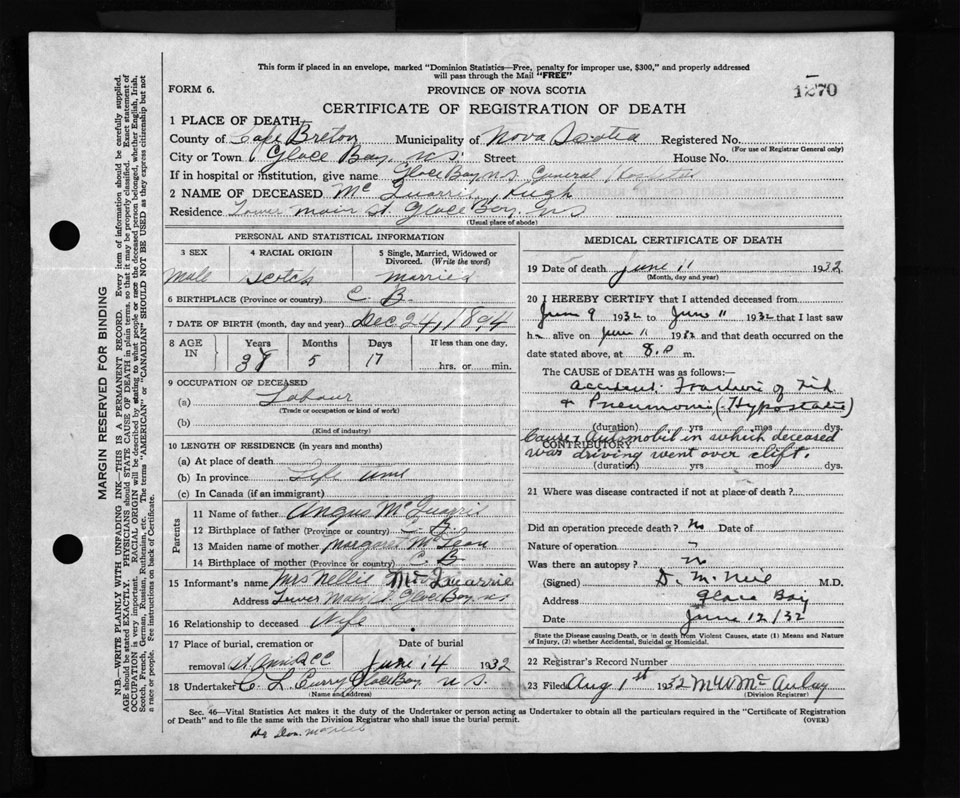 This form if placed in an envelope, marked "Dominion Statistics—Free, penalty for improper use, $300," and properly addressed
will pass through the Mail "FREE"
FORM 6.
PROVINCE OF NOVA SCOTIA
1270
CERTIFICATE OF REGISTRATION OF DEATH
1 PLACE OF DEATH
County of Cape Breton Municipality of Nova Scotia Registered No.
(For use of Registrar General only)
City or Town Glace Bay. N.S. Street House No.
If in hospital or institution, give name Glace Bay N.S General Hospital
2 NAME OF DECEASED Mc Quarrie, Hugh
Residence Lower Main St. Glace Bay. NS
(Usual place of abode)
PERSONAL AND STATISTICAL INFORMATION
3 SEX 4 RACIAL ORIGIN 5 Single, Married, Widowed or
Divorced. (Write the word)
Male Scotch Married
6 BIRTHPLACE (Province or country) C. B.
7 DATE OF BIRTH (month, day and year) Dec 24, 1894
8 AGE IN Years Months Days If less than one day.
38 5 17 hrs. or min.
9 OCCUPATION OF DECEASED
(a) Labour
(Trade or occupation or kind of work)
(b)
(Kind of industry)
10 LENGTH OF RESIDENCE (in years and months)
(a) At place of death
(b) In province Life time
(c) In Canada (if an immigrant)
Parents
11 Name of father Angus McQuarrie
12 Birthplace of father (Province or country) C. B.
13 Maiden name of mother Margaret McLean
14 Birthplace of mother (Province or country) C. B
15 Informant's name Mrs Nellie McQuarrie
Address Lower Main St. Glace Bay. N.S
16 Relationship to deceased Wife
17 Place of burial, cremation or Date of burial
removal June 14 1932
18 Undertaker C. L. Curry Glace Bay N.S.
(Name and address)
MEDICAL CERTIFICATE OF DEATH
19 Date of death June 11 1932
(Month, day and year)
20 I HEREBY CERTIFY that I attended deceased from
June 9 1932 to June 11 1932 that I last saw
h alive on June 11 1932 and that death occurred on the
date stated above, at 8.0 m.
The CAUSE OF DEATH was as follows:—
Accident. Fracture of
& Pneumonia, (Hypostatic)
(duration) yrs mos dys.
Cause Automobil in which deceased
CONTRIBUTORY
was driving went over clift.
(duration) yrs mos dys.
21 Where was disease contracted if not at place of death?
Did an operation precede death? No Date of
Nature of operation
Was there an autopsy? No
(Signed) D. McNeil M.D.
Address Glace Bay
Date June 12/32
State the Disease causing Death, or in death from Violent Causes, state (1) Means and Nature
of Injury, (2) whether Accidental, Suicidal or Homicidal.
22 Registrar's Record Number
23 Filed Aug 1st 1932 McAulay
(Division Registrar)
Sec. 46—Vital Statistics Act makes it the duty of the Undertaker or person acting as Undertaker to obtain all the particulars required in the "Certificate of Registration
of Death" and to file the same with the Division Registrar who shall issue the burial permit.
(OVER)
MARGIN RESERVED FOR BINDING
N.B.—WRITE PLAINLY WITH UNFADING INK—THIS IS A PERMANENT RECORD. Every item of information should be carefully supplied.
AGE should be stated EXACTLY. PHYSICIANS should STATE CAUSE OF DEATH in plain terms, so that it may be properly classified. Exact statement of
OCCUPATION is very important. RACIAL ORIGIN will be described by stating to what people or race the deceased person belonged, whether English, Irish,
Scotch, French, German, Russian, Ruthenian, etc. The terms "AMERICAN" or "CANADIAN" SHOULD NOT BE USED as they express citizenship but not
a race or people. See instructions on back of Certificate.